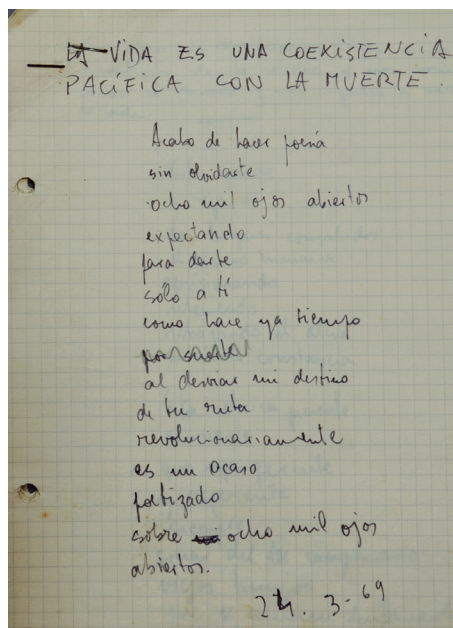 LA VIDA ES UNA COEXISTENCIA
PACÍFICA CON LA MUERTE.
Acabo de hacer poesía
sin olvidarte
ocho mil ojos abiertos
expectando
para darte
sólo a tí
como hace ya tiempo
por suerte
al desviar mi destino
de tu ruta
revolucionariamente
es un ocaso
poetizado
sobre ocho mil ojos
abiertos.
24. 3-69